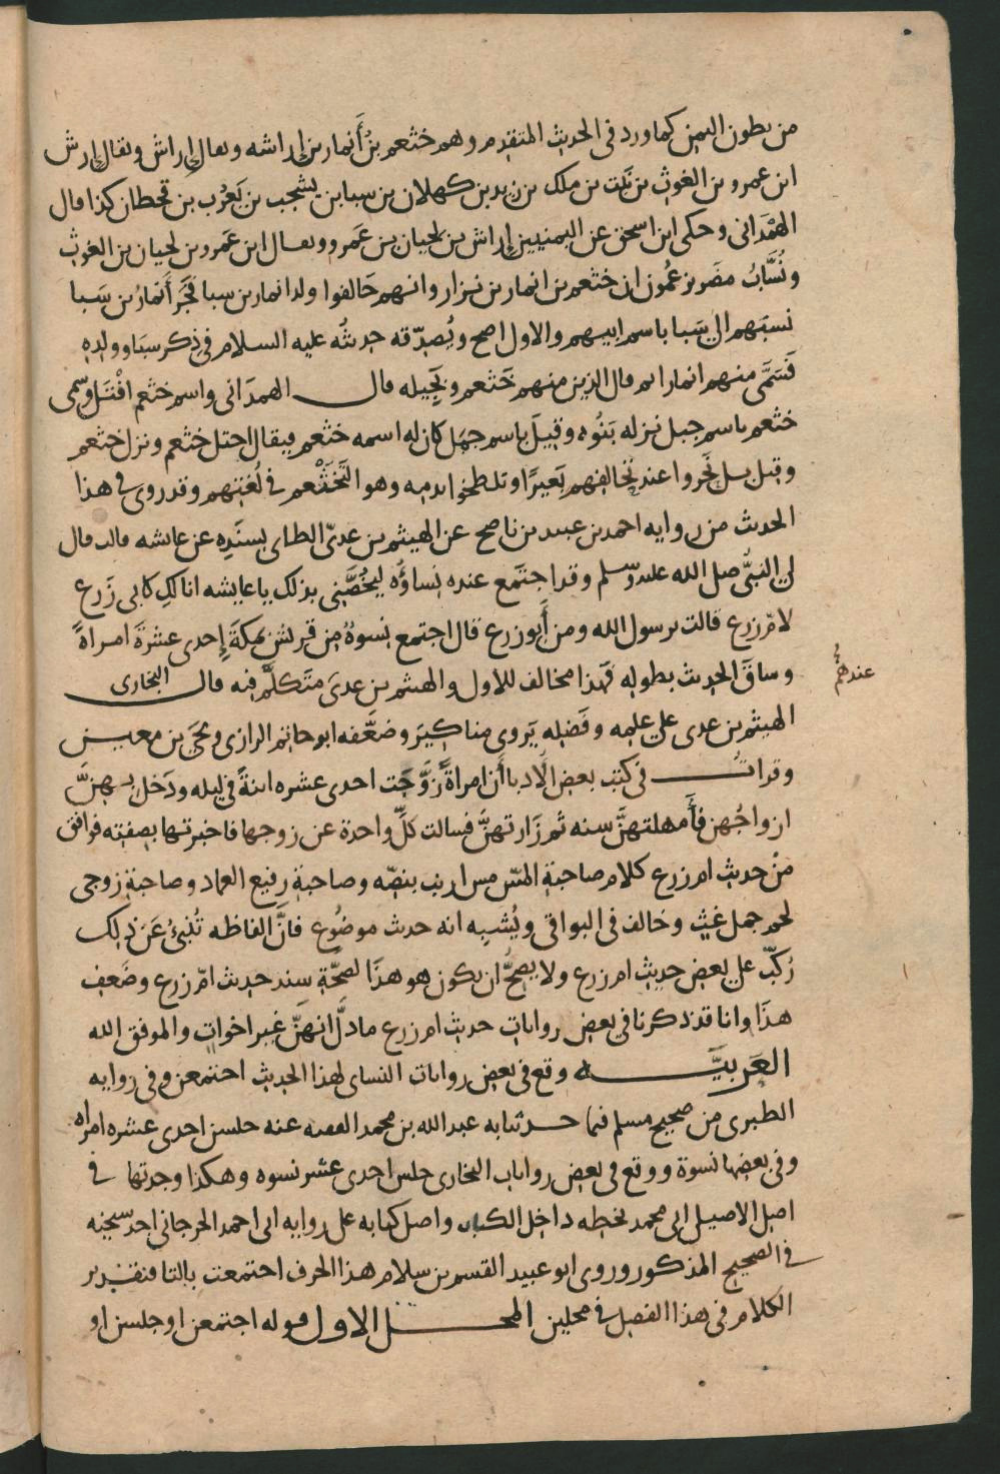 من بطون اليمن كما ورد في الحديث المتقدم وهم خثعم بنُ أَنمار بن إراشه ويقال إراش ويقال إرش
ابن عمرو بن الغوث بن نَبْت بن ملك بن زيد بن كهلان بن سبا بن يشجب بن يَعْرُب بن قحطان كذا قال
الهَمْدَاني وحكى ابن اسحق عن اليمنيين إراش بن لحيان بن عَمرو ويقال ابن عَمرو بن لحيان بن الغوث
ونُسَّابُ مضَر يزعُمُون ان خثعم بن انمار بن نزار وانهم حَالفوا ولد انمار بن سبا فَجَرَّ أَنمارُ بن سَبا
نسبَهم الى سَبا باسم ابيهم والاول اصح ويُصدّقه حديثُه عليه السلام في ذكر سبَا وولده
فَسَمَّى منهم انمارا ثم قال الذين منهم خَثعم وبَجيله قال الهمدَانى واسم خثعم افْتَل وسمى
خثعم باسم جبل نزله بَنُوه وقيلَ باسم جمَل كان له اسمه خثعم فيقال احتل خثعم ونزل خثعم
وقيل بل نَحروا عند تحالفهم بَعيرًا وتلطخوا بدمه وهو التَّخَثْعم في لُغتهم وقد روى في هذا
الحديث من روايه احمد بن عبيد بن ناصح عن الهيثم بن عدىّ الطاى بسنَدِه عن عايشه قالت قال
لي النبيُّ صلى الله عليه وسلم وقد اجتَمع عنده نساؤُه ليخُصَّني بذلك يا عايشه انا لكِ كابى زَرع
لامّ زرع قالت يرسول الله ومن أَبو زرع قال اجتمع نسوةٌ من قريش بمكةَ إحدى عشرةَ امراةً
وساقَ الحديث بطوله فهَذا مخالف للاول والهيثم بن عدىَ متَكلَّم فيه قال البخارى
عندهُم
الهيثم بن عدى على علمه وفَضله يَروى مناكيَر وضعَّفه ابو حاتم الرازى ويحيَى بن معين
وقرات في كتب بعض الأُدبا أَن امراةً زَوَّجَت احدى عشره ابنةً في ليله ودَخل بهنَّ
ازواجُهن فأَمهلتهنَّ سنه ثم زَارتهنَّ فسالت كلَّ واحدة عن زوجها فاخبرتها بصفته فوافق
منْ حديث ام زرع كلام صاحبة المسّ مس ارنب بنصّه وصاحبة رفيع العماد وصاحبة زوجى
لحم جمل غَثٍ وخالف في البواقى ويُشبه انه حديث موضُوع فانَّ الفاظه تُنبئُ عَن ذلك
رُكبّ على بعض حديث ام زرع ولا يصحُّ ان يكون هو هذا لصحّة سند حديث امّ زرع وضَعف
هذَا وانا قد ذكرنا في بعض روايات حديث ام زرع ما دلَّ انهنّ غير اخوات والموفق الله
العَربيَّـــه وقع في بعض روايات النساى لهذا الحديث اجتمعن وفى روايه
الطبرى من صحيح مسلم فيما حدثنا به عبد الله بن محمد الفقيه عنه جلسن احدى عشره امراه
وفى بعضها نسوة ووقع في بعض روايات البخارى جلس احدى عشر نسوه وهكذا وجدتها في
اصل الاصيلى ابى محمد بخطه داخل الكتاب واصل كتابه على روايه ابى احمد الجرجانى احد شيخيه
في الصحيح المذكور وروى ابو عبيد القسم بن سلام هذا الحرف اجتمعت بالتا فتقدير
الكلام في هذا الفصل في محلين المحل الاول قوله اجتمعن او جلسن او